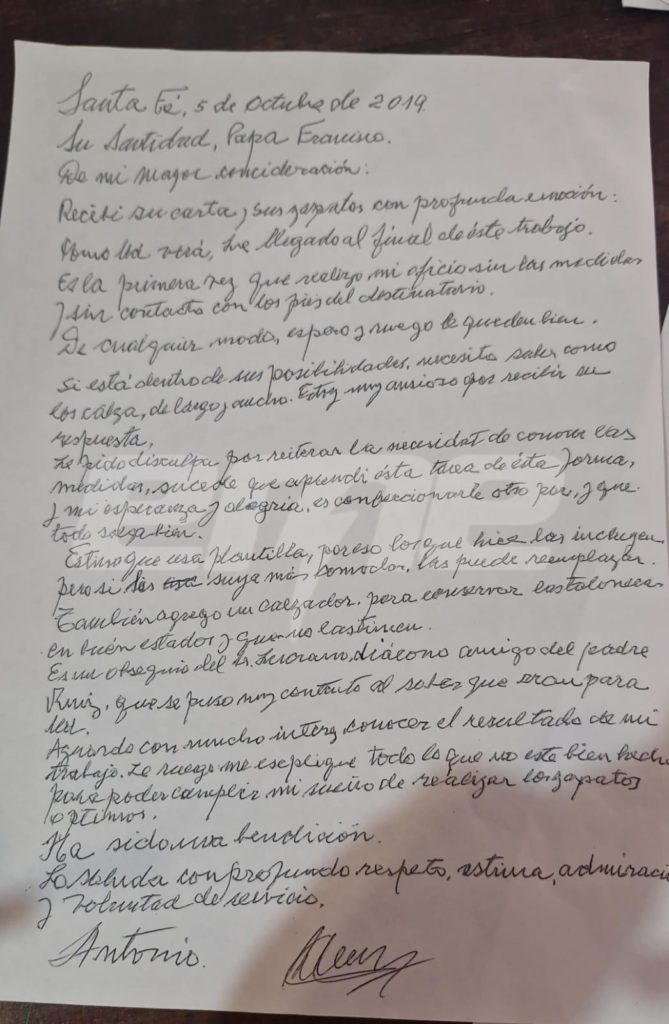 Santa Fé, 5 de octubre de 2019.
Su Santidad, Papa Francisco.
De mi mayor concideración:
Recibí su carta y sus zapatos con profunda emoción:
Como Ud verá, he llegado al final de éste trabajo.
Es la primera vez que realizo mi oficio sin las medidas
y sin contacto con los pies del destinatario.
De cualquier modo, espero y ruego le queden bien.
Si está dentro de sus posibilidades, necesito saber como
los calza, de largo y ancho. Estoy muy ansioso por recibir su
respuesta.
Le pido disculpa por reiterar la necesidat de conocer las
medidas, sucede que aprendí ésta tarea de ésta forma,
y mi esperanza y alegría, es confeccionarle otro par, y que
todo salga bien.
Estimo que usa plantilla, por eso los que hice las incluyen
pero si las suya más comodas, las puede reemplazar.
También agrego un calzador. para conservar los talones
en buen estado y que no lastimen.
Es un obsequio del Sr. Luciano, diácono amigo del padre
Ruiz, que se puso muy contento al saber que eran para
Ud.
Aguardo con mucho interes, conocer el resultado de mi
trabajo. Le ruego me esplique todo lo que no esté bien hecho
para poder cumplir mi sueño de realizar los zapatos
optimos.
Ha sido una bendición.
Lo saluda con profundo respeto, estima, admiraci
y voluntad de servicio.
Antonio.